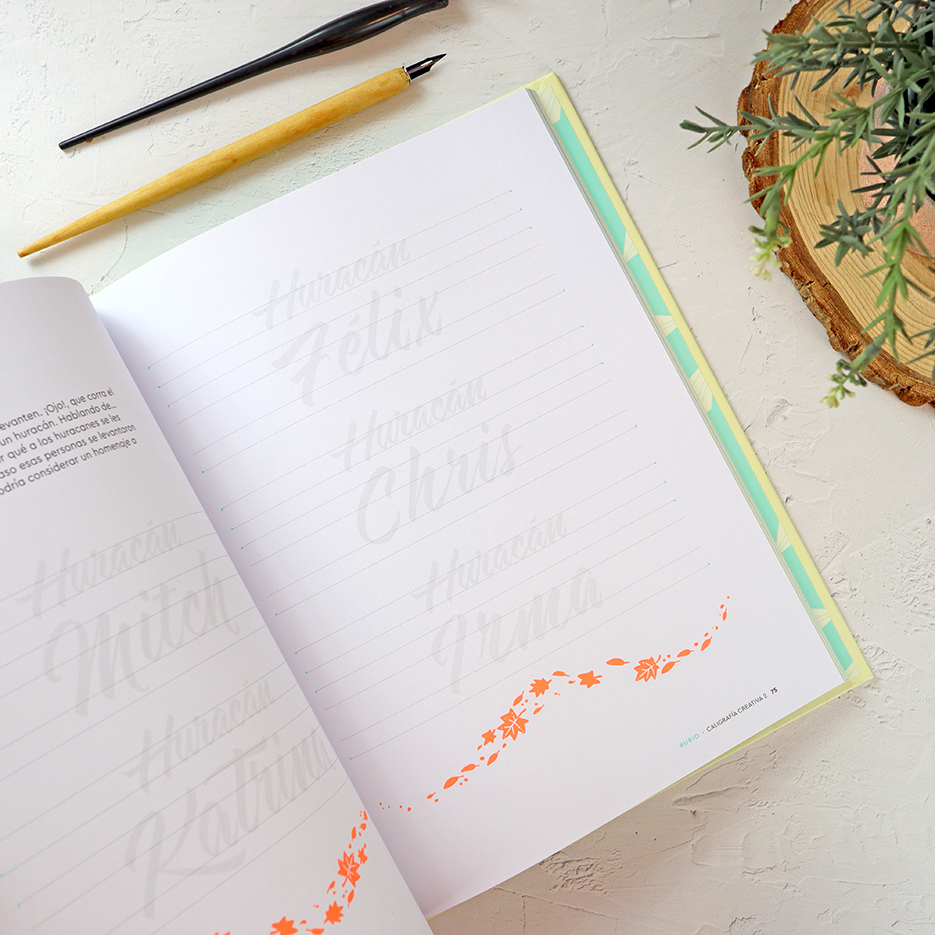 evanten. ¡Ojo!, que corra el
un huracán. Hablando de...
r qué a los huracanes se les
aso esas personas se levantaron
odría considerar un homenaje a
Huracán
Mitch
Huracán
Katrina
Huracán
Félix
Huracán
Chris
Huracán
Irma
RUBIO · CALIGRAFÍA CREATIVA 2 75